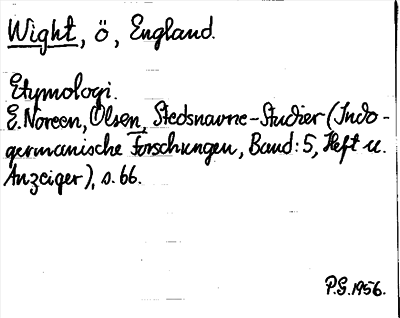 Wight, ö, England.
Etymologi.
E. Noreen, Olsen, Stedsnavne-Studier (Indo-
germanische Forschungen, Band: 5, Heft u.
Anzeiger), s. 66.
P.G. 1956.